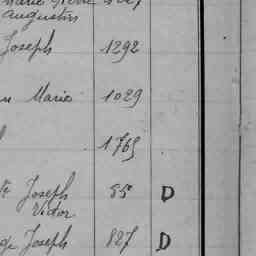 Augustin
Joseph 1292
Marie 1029
1765
Joseph 85 D
Victor
Joseph 827 D